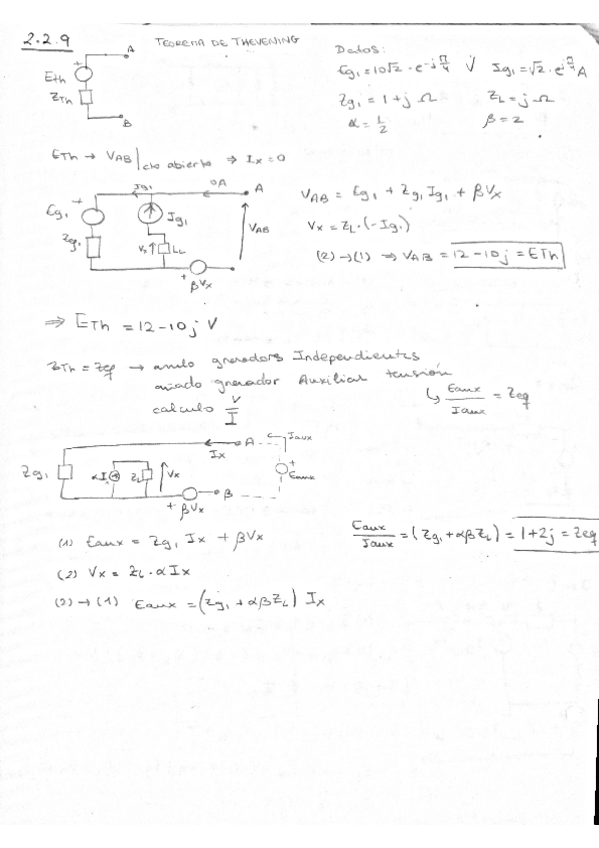 2.2.9 TEOREMA DE THEVENING
Datos:
Eg₁=10√2·e^-jπ/4 V Ig₁=√2·e^jπ/4 A
Zg₁ = 1+j Ω ZL=j Ω
α=1/2 β=2
A
+
ETh
ZTh
B
ETh → VAB | cto abierto ⇒ Ix=0
Ig₁ 0A A
Eg₁ +
Ig₁
Zg₁
VAB
+ βVx
VAB = Eg₁ + Zg₁ Ig₁ + βVx
Vx = ZL·(-Ig₁)
(2)→(1) ⇒ VAB = 12-10j = ETh
⇒ ETh = 12-10j V
ZTh = Zeq → anulo generadores Independientes
añado generador Auxiliar tensión
calculo V/I
↳ Eaux/Iaux = Zeq
Ix A Iaux
Zg₁ αIx ZL Vx + Eaux
B
+ βVx
(1) Eaux = Zg₁ Ix + βVx
(2) Vx = ZL·αIx
(2)→(1) Eaux = (Zg₁ + αβZL) Ix
Eaux/Iaux = (Zg₁+αβZL) = 1+2j = Zeq